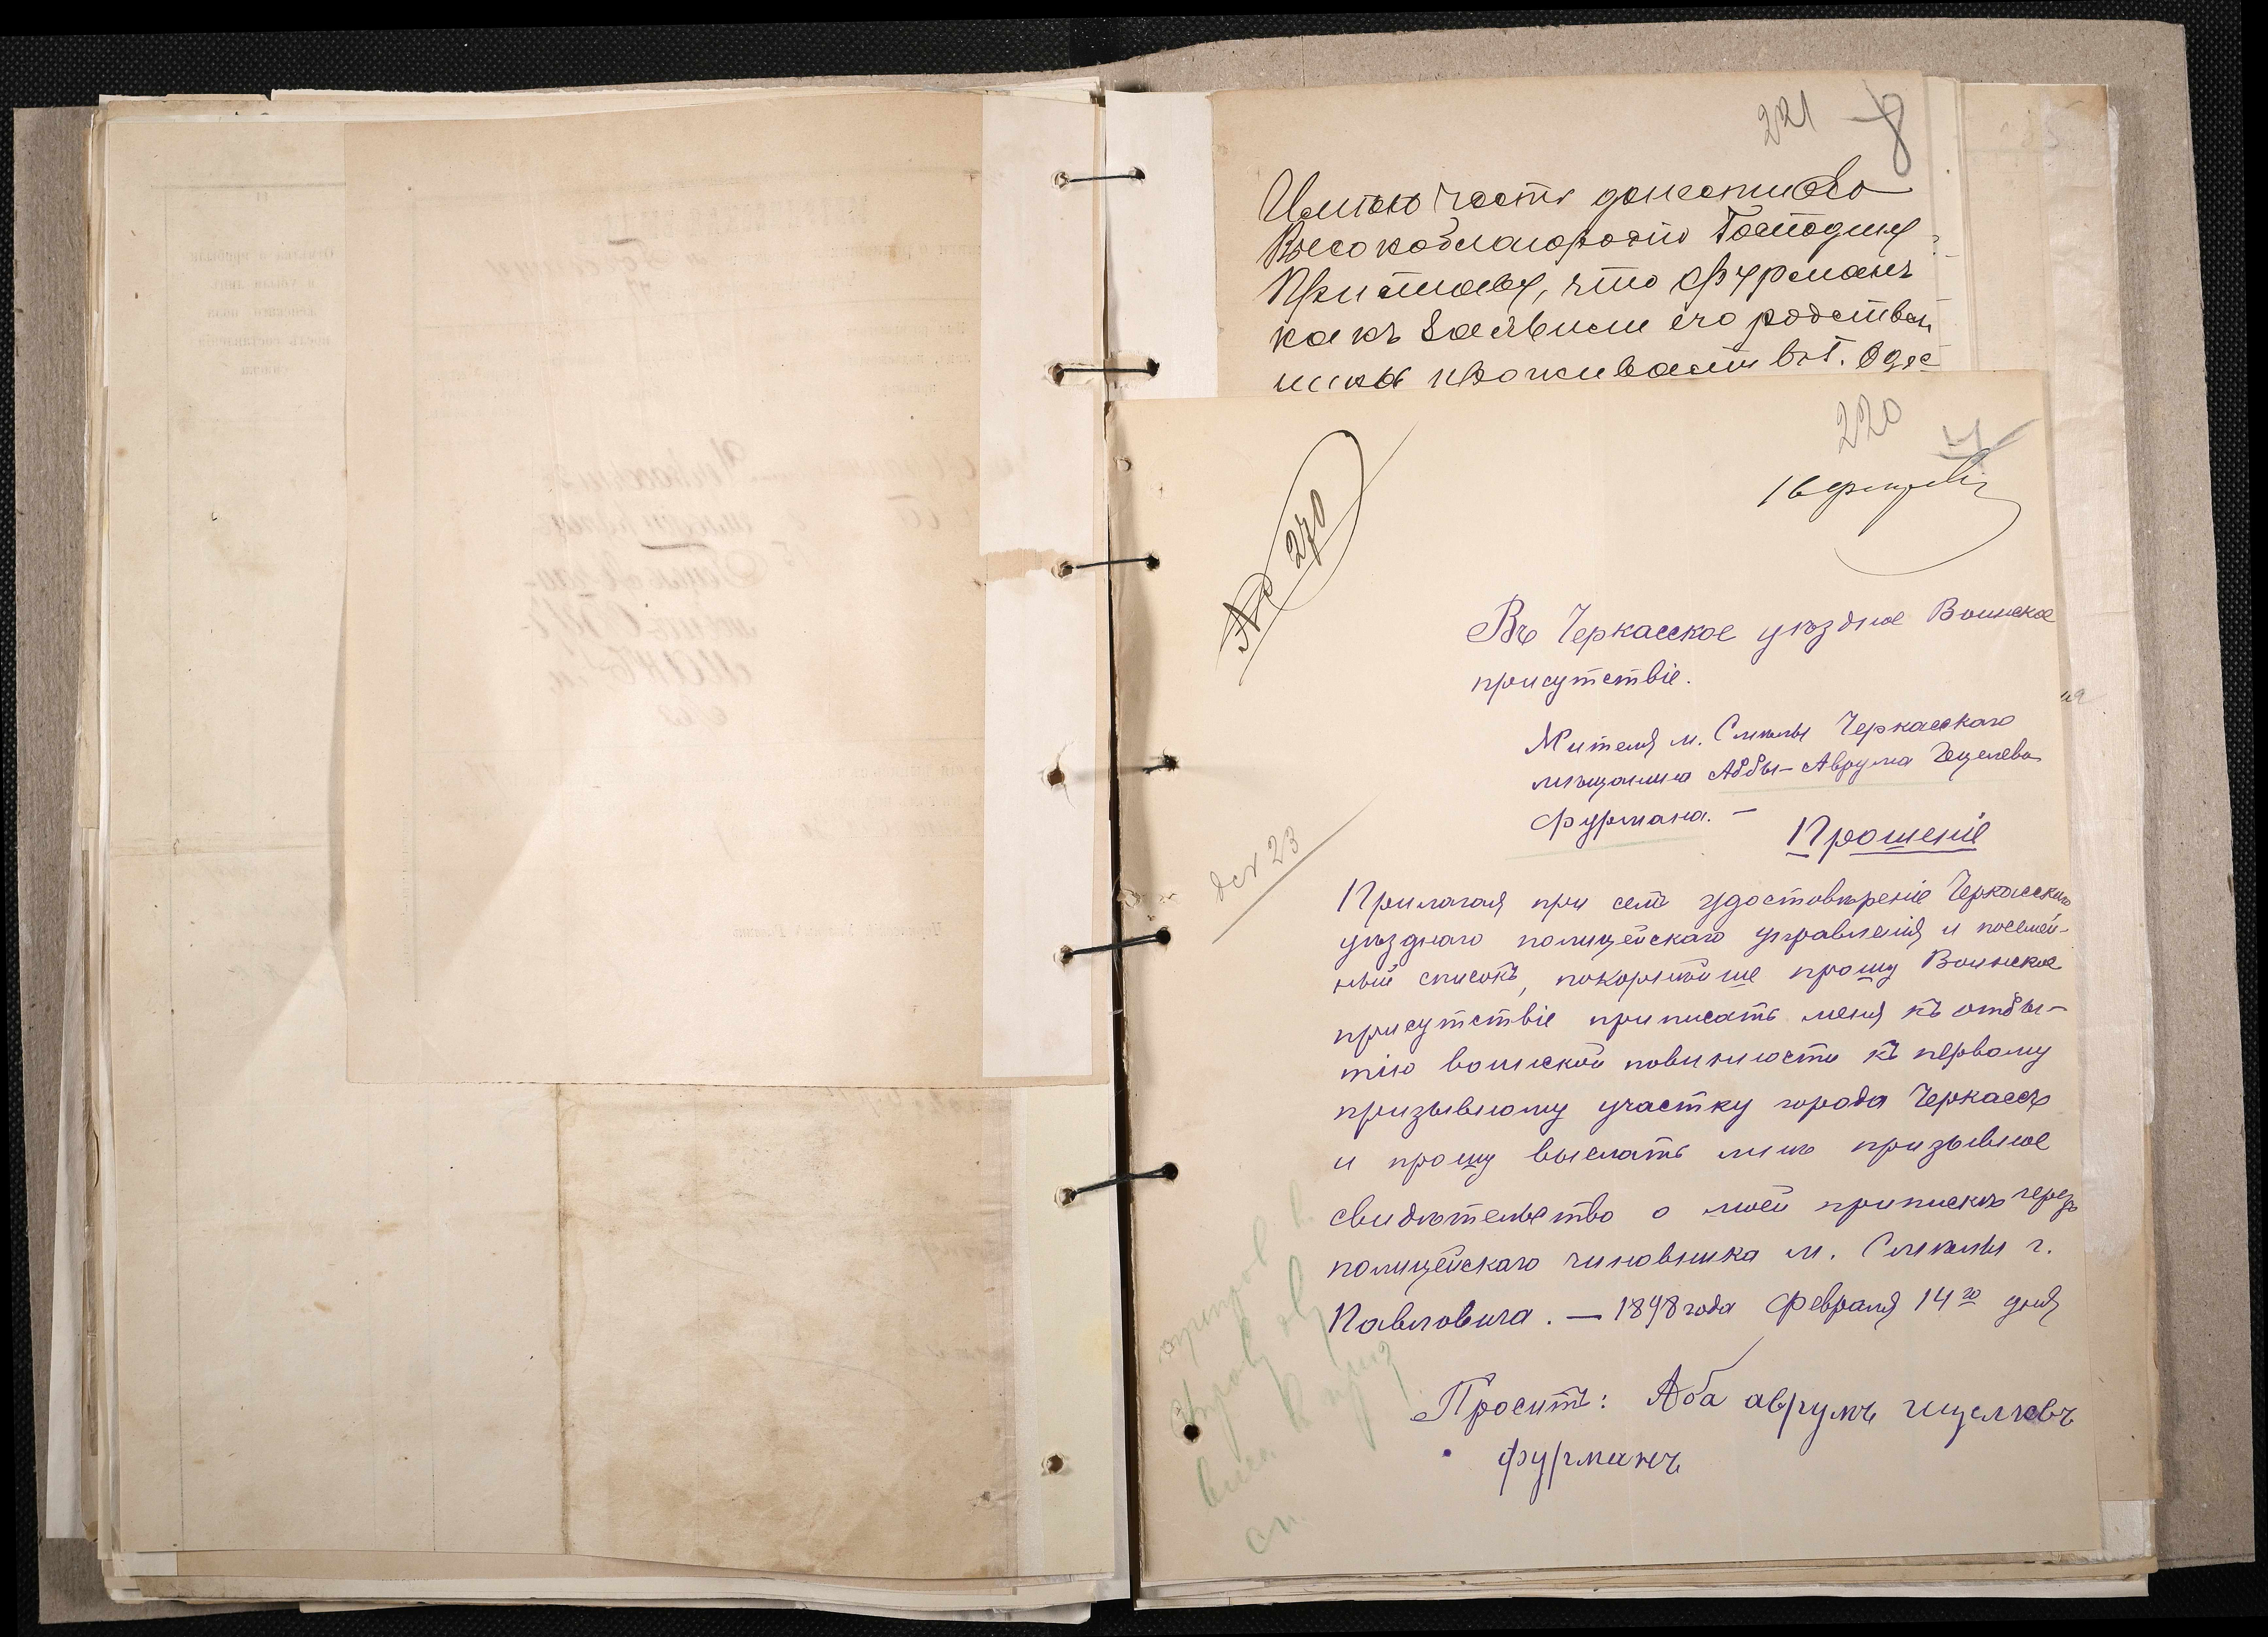 221 8
Имѣю честь донести Его
Высокоблагородію Господину
Приставу, что Фурманъ
какъ заявили его родствен
ники проживаетъ въ г. Одес
220
16 февраля
№ 270
Въ Черкасское уѣздное Воинское
присутствіе.
Жителя м. Смѣлы Черкасскаго
мѣщанина Аббы-Аврума Гецелева
Фурмана. —
Прошеніе
Прилагая при семъ удостовѣреніе Черкасскаго
уѣзднаго полицейскаго управленія и посемей-
ный списокъ, покорнѣйше прошу Воинское
присутствіе приписать меня къ отбы-
тію воинской повинности къ первому
призывному участку города Черкассъ
и прошу выслать мнѣ призывное
свидѣтельство о моей припискѣ черезъ
полицейскаго чиновника м. Смѣлы г.
Павловича. — 1898 года Февраля 14го дня
Проситъ: Аба аврумъ гецелевъ
фурманъ
23